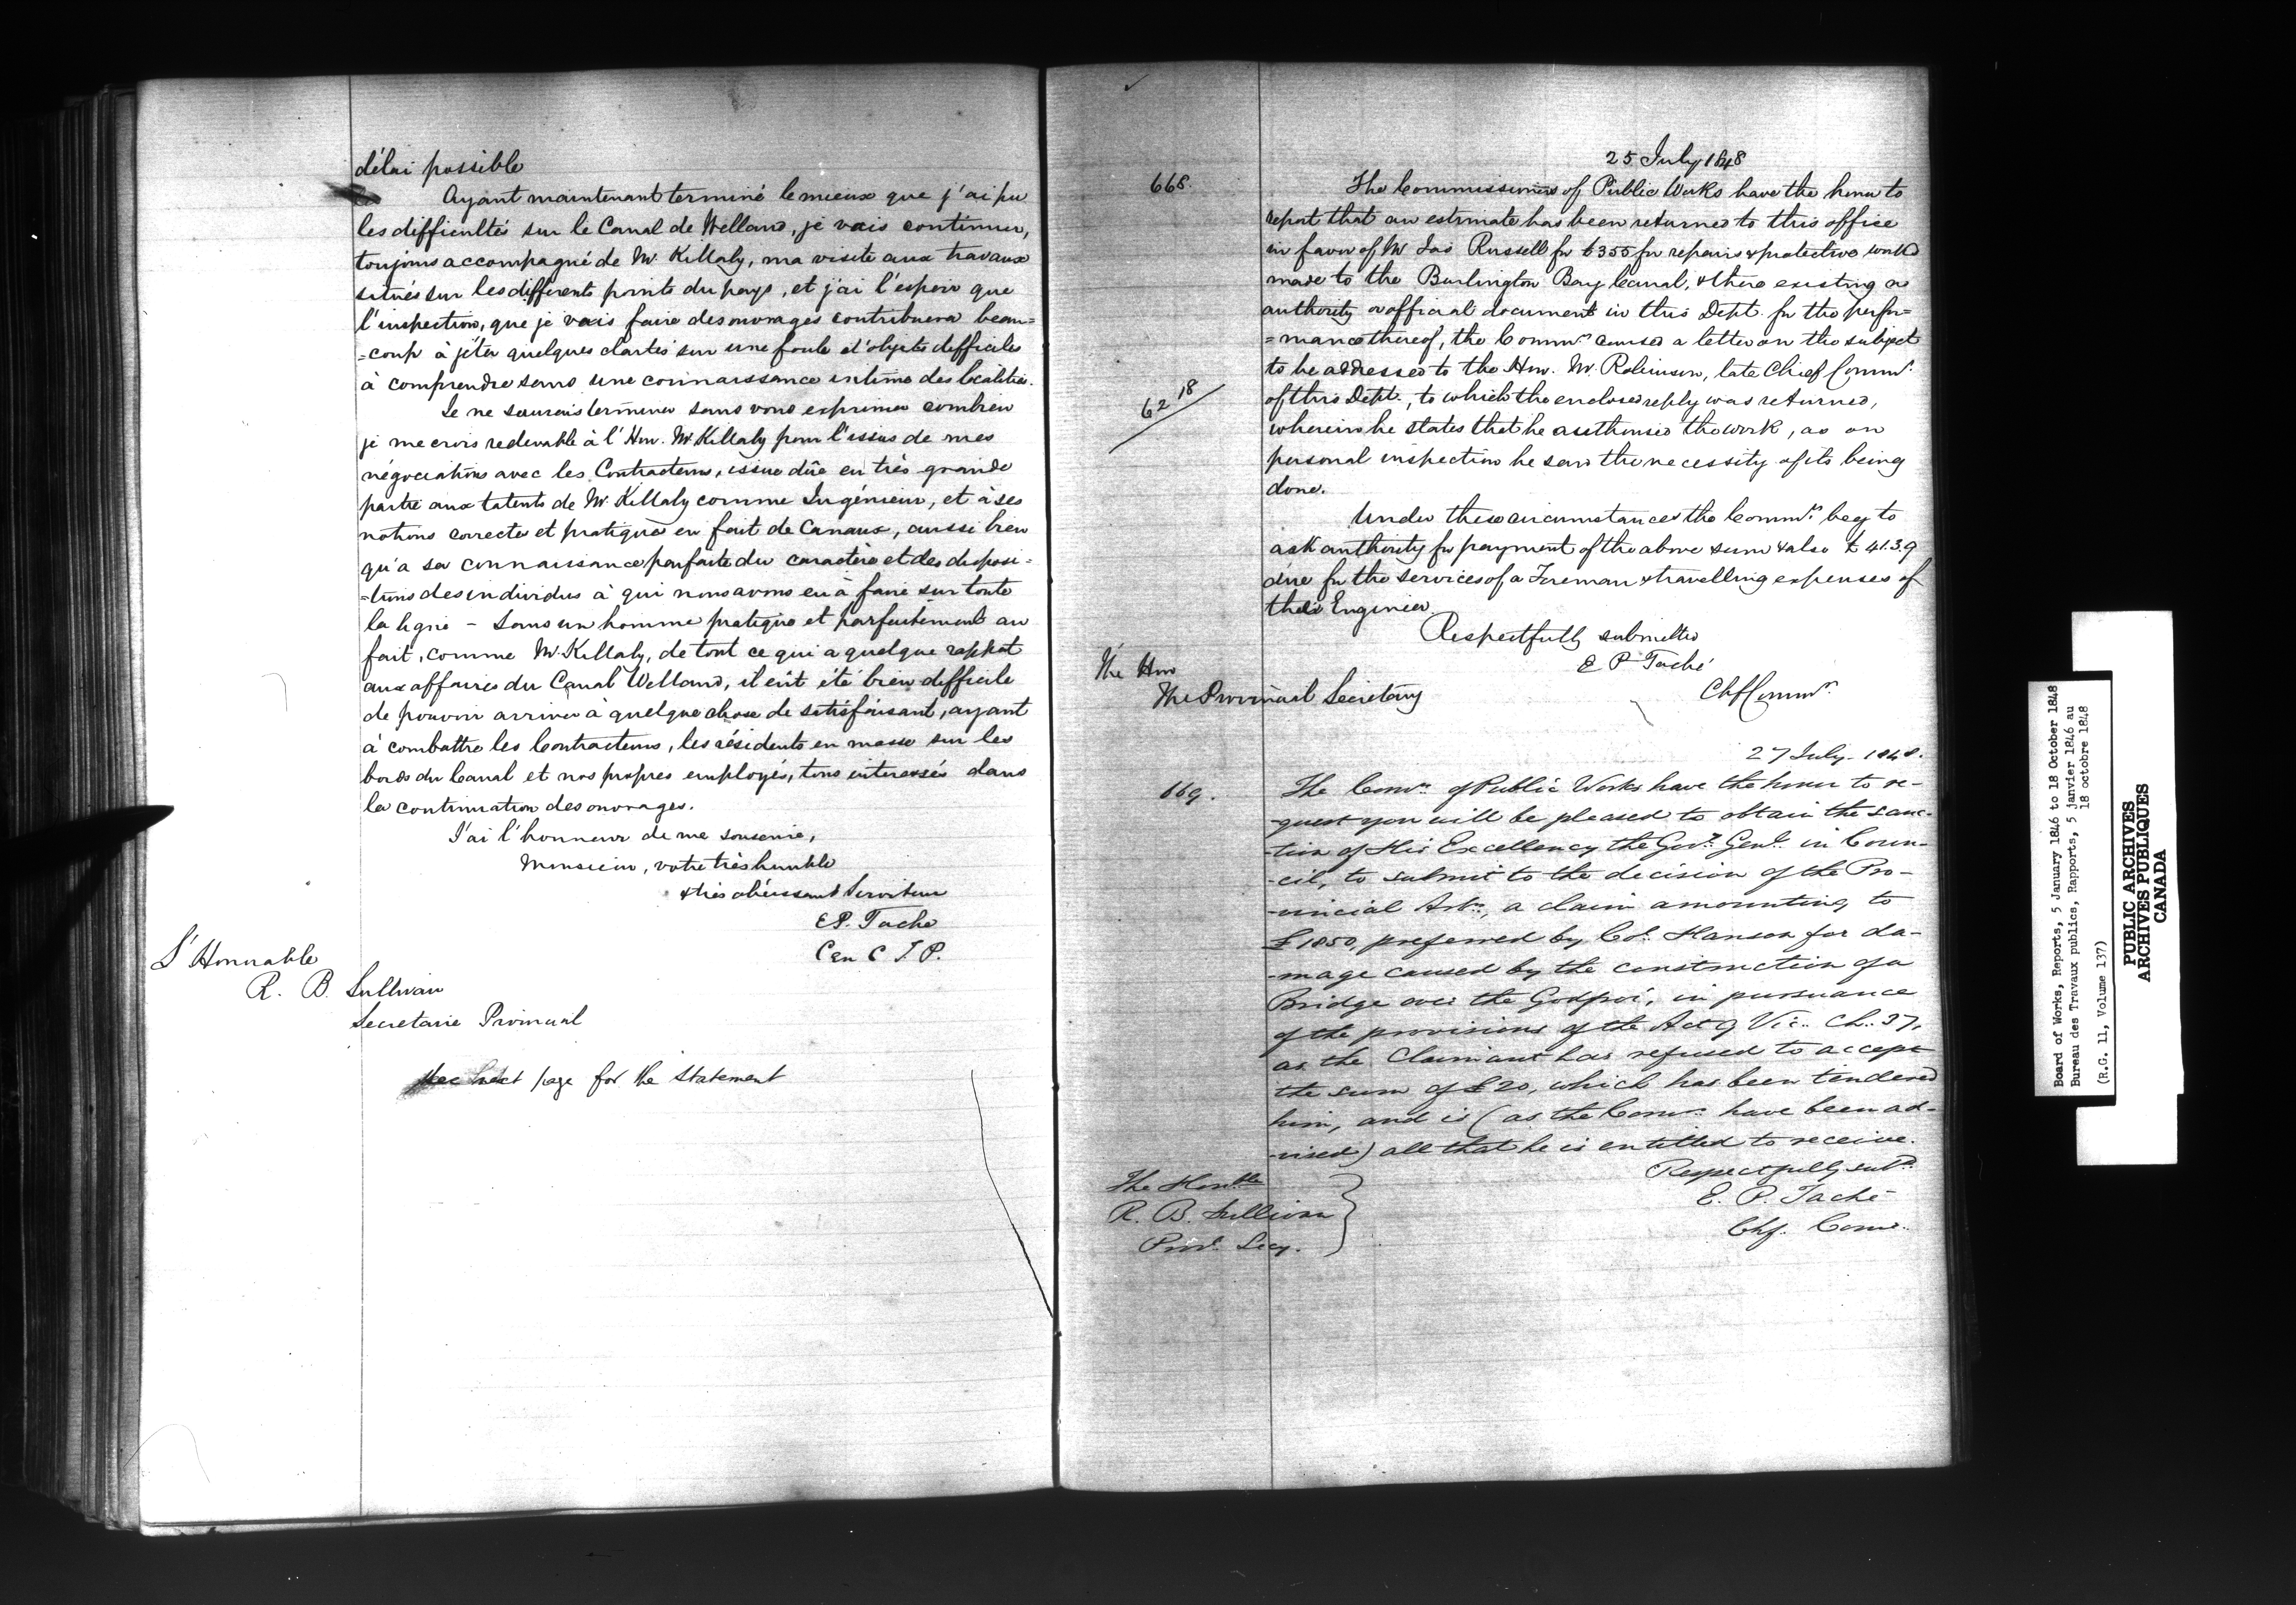 délai possible
Ayant maintenant terminé le mieux que j'ai pu
les difficultés sur le Canal de Welland, je vais continuer,
toujours accompagné de Mr. Killaly, ma visite aux travaux
situés sur les différents points du pays, et j'ai l'espoir que
l'inspection, que je vais faire des ouvrages contribuera beau=
=coup à jéter quelques clartés sur une foule d'objets difficiles
à comprendre sans une connaissance intime des localités.
Je ne saurais terminer sans vous exprimer combien
je me crois redevable à l'Hon. Mr Killaly pour l'issue de mes
négociations avec les Contracteurs, issue dûe en très grande
partie aux talents de Mr. Killaly comme Ingénieur, et à ses
notions correctes et pratique en fait de Canaux, aussi bien
qu'a sa connaissance parfaite du caractère et des disposi=
=tions des individus à qui nous avons eu à faire sur toute
la ligne - Sans un homme pratique et parfaitement au
fait, comme Mr. Killaly, de tout ce qui a quelque rapport
aux affaires du Canal Welland, il eût été bien difficile
de pouvoir arriver à quelque chose de satisfaisant, ayant
à combattre les Contracteurs, les résidents en masse sur les
bords du Canal et nos propres employés, tous interessés dans
la continuation des ouvrages.
J'ai l'honneur de me souscrire,
Monsieur, votre très humble
& très obéissant Serviteur
E.P. Taché
C en C T. P.
L'Honorable
R. B. Sullivan
Secretaire Provincial
See next page for the Statement
25 July 1848
668.
The Commissioners of Public Works have the honor to
report that an estimate has been returned to this office
in favor of Mr Jas Russell for £355 for repairs & protective works
made to the Burlington Bay Canal, & there existing no
authority or official document in this Dept. for the perfor=
=mance thereof, the Commrs caused a letter on the subject
to be addressed to the Hon. Mr. Robinson, late Chief Commr.
62 18
of this Dept., to which the enclosed reply was returned,
wherein he states that he authorised the work, as on
personal inspection he saw the necessity of its being
done.
Under these circumstances the Commrs. beg to
ask authority for payment of the above sum & also £ 41.3.9
due for the services of a Foreman & travelling expenses of
their Engineer.
Respectfully submitted
E P Taché
Chf Commr.
The Hon
The Provincial Secretary
27 July 1848.
669.
The Comrs. of Public Works have the honor to re-
-quest you will be pleased to obtain the sanc-
-tion of His Excellency the Govr. Genl. in Coun-
-cil, to submit to the decision of the Pro-
-vincial Arbrs., a claim amounting to
£1850, preferred by Col. Hanson for da-
-mage caused by the construction of a
Bridge over the Godfroi, in pursuance
of the provisions of the Act 9 Vic. Ch. 37,
as the Claimant has refused to accept
the sum of £20, which has been tendered
him, and is (as the Comrs. have been ad-
-vised) all that he is entitled to receive.
Respectfully subd.
E. P. Taché
Chf. Comr.
The Honble
R. B. Sullivan
Provl. Secy.
Board of Works, Reports, 5 January 1846 to 18 October 1848
Bureau des Travaux publics, Rapports, 5 janvier 1846 au
18 octobre 1848
(R.G. 11, Volume 137)
PUBLIC ARCHIVES
ARCHIVES PUBLIQUES
CANADA